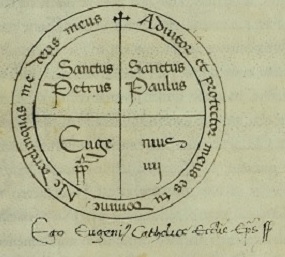 ✝ Adiutor et protector meus es tu domine: Ne derelinquas me deus meus
Sanctus Sanctus
Petrus Paulus
Euge nius
pp iiij
Ego Eugeni⁹ Catholice Ecclie Eps ss